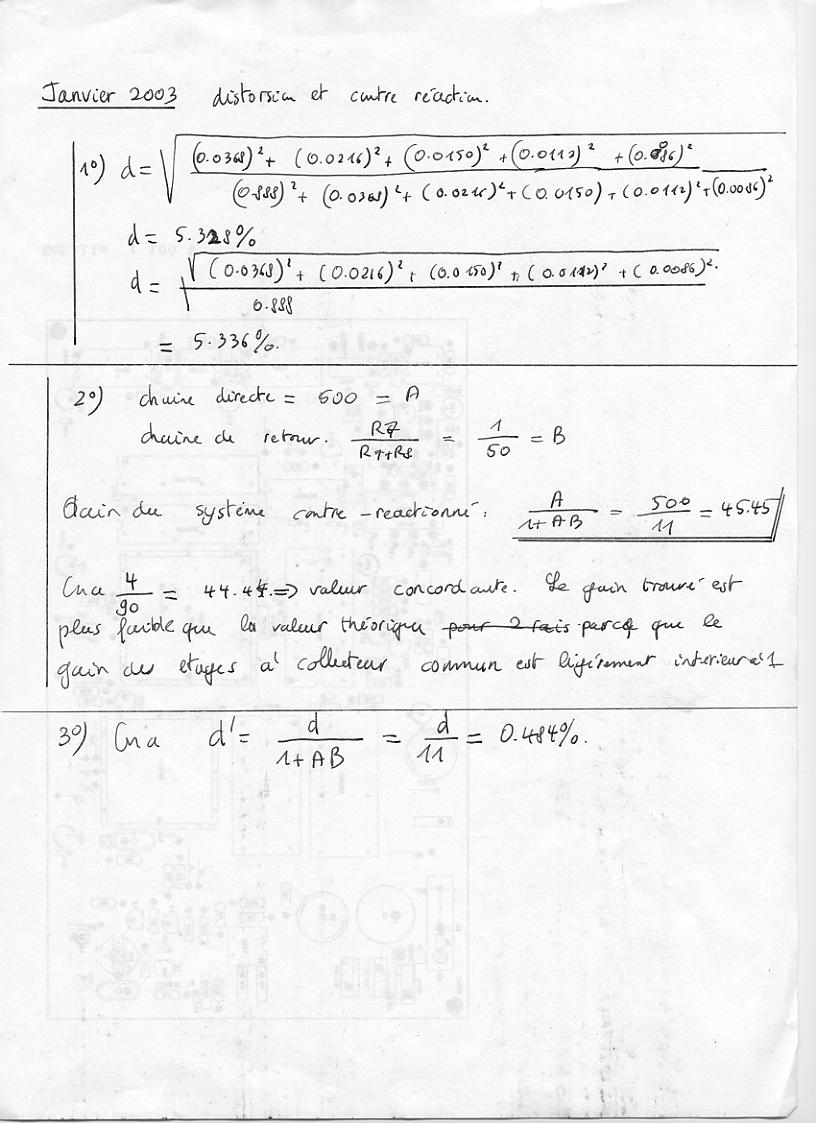 Janvier 2003 distorsion et contre réaction.
1°) d = √ (0.0368)² + (0.0216)² + (0.0150)² + (0.0112)² + (0.0086)²
(0.888)² + (0.0368)² + (0.0216)² + (0.0150) + (0.0112)² + (0.0086)²
d = 5.328%
d = √(0.0368)² + (0.0216)² + (0.0150)² + (0.0112)² + (0.0086)².
0.888
= 5.336%.
2°) chaine directe = 500 = A
chaine de retour. R7 / R7+R8 = 1 / 50 = B
Gain du système contre-reactionné: A / 1+AB = 500 / 11 = 45.45
On a 4 / 90 = 44.44. => valeur concordante. Le gain trouvé est
plus faible que la valeur théorique pour 2 fais parcq que le
gain des etages à collecteur commun est ligérement interieur à 1
3°) On a d' = d / 1+AB = d / 11 = 0.484%.